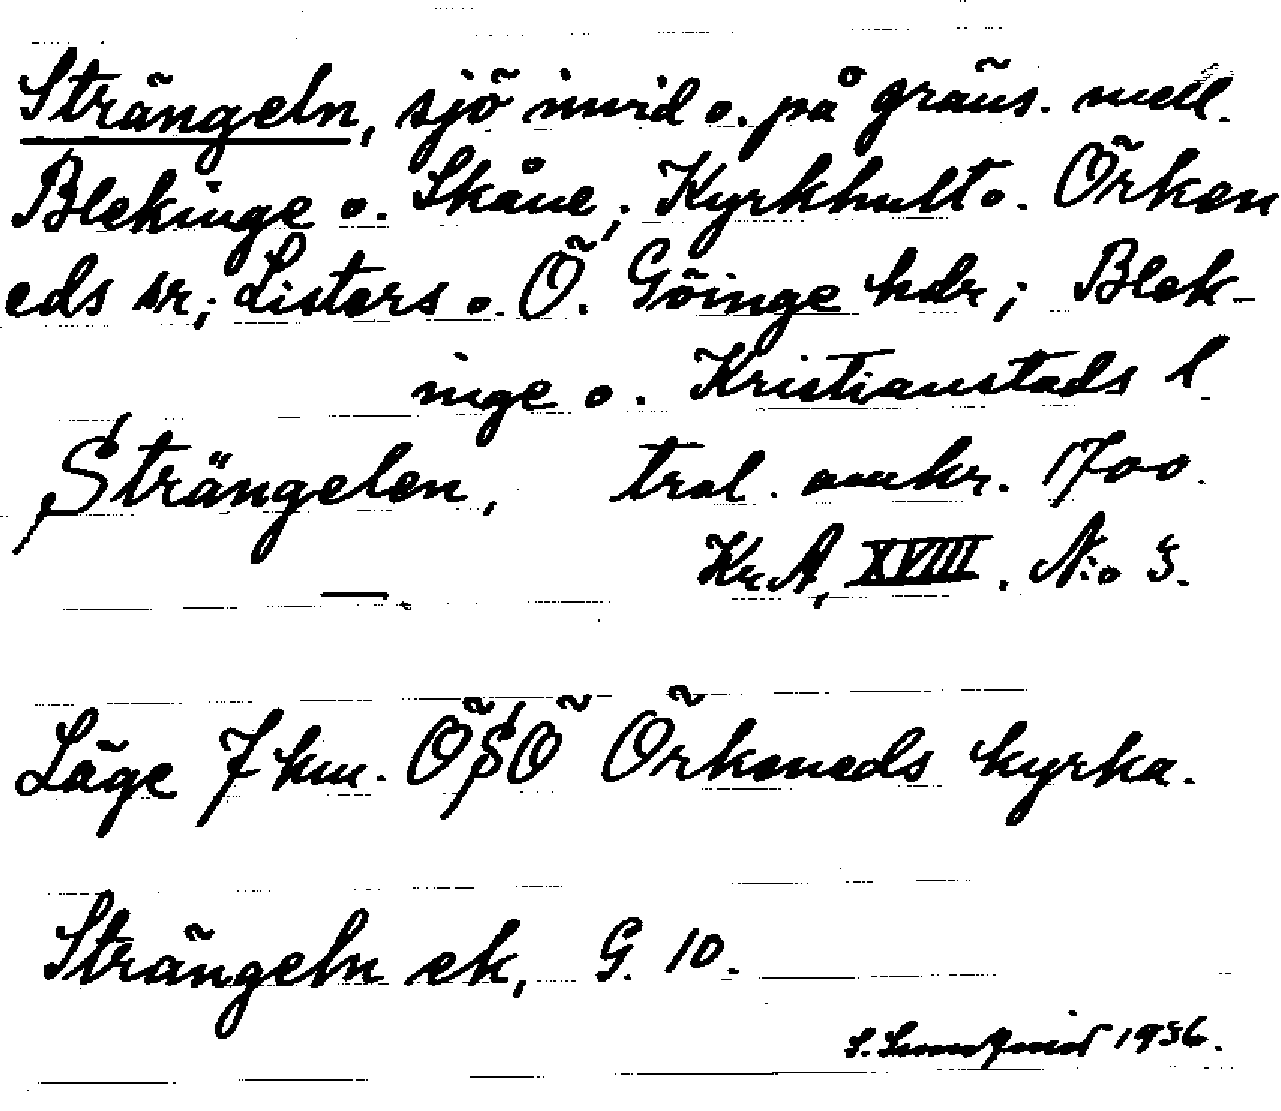 Strängeln, sjö invid o. på gräns. mell.
Blekinge o. Skåne; Kyrkhult o. Örken
eds sr; Listers o. Ö. Göinge hdr; Blek-
inge o. Kristianstads l.
Strängelen, tral. omkr. 1700.
KrA, XVIII. N:o 3.
Läge 7 km. ÖSÖ Örkeneds kyrka.
Strängeln ek, G. 10.
S. 1936.